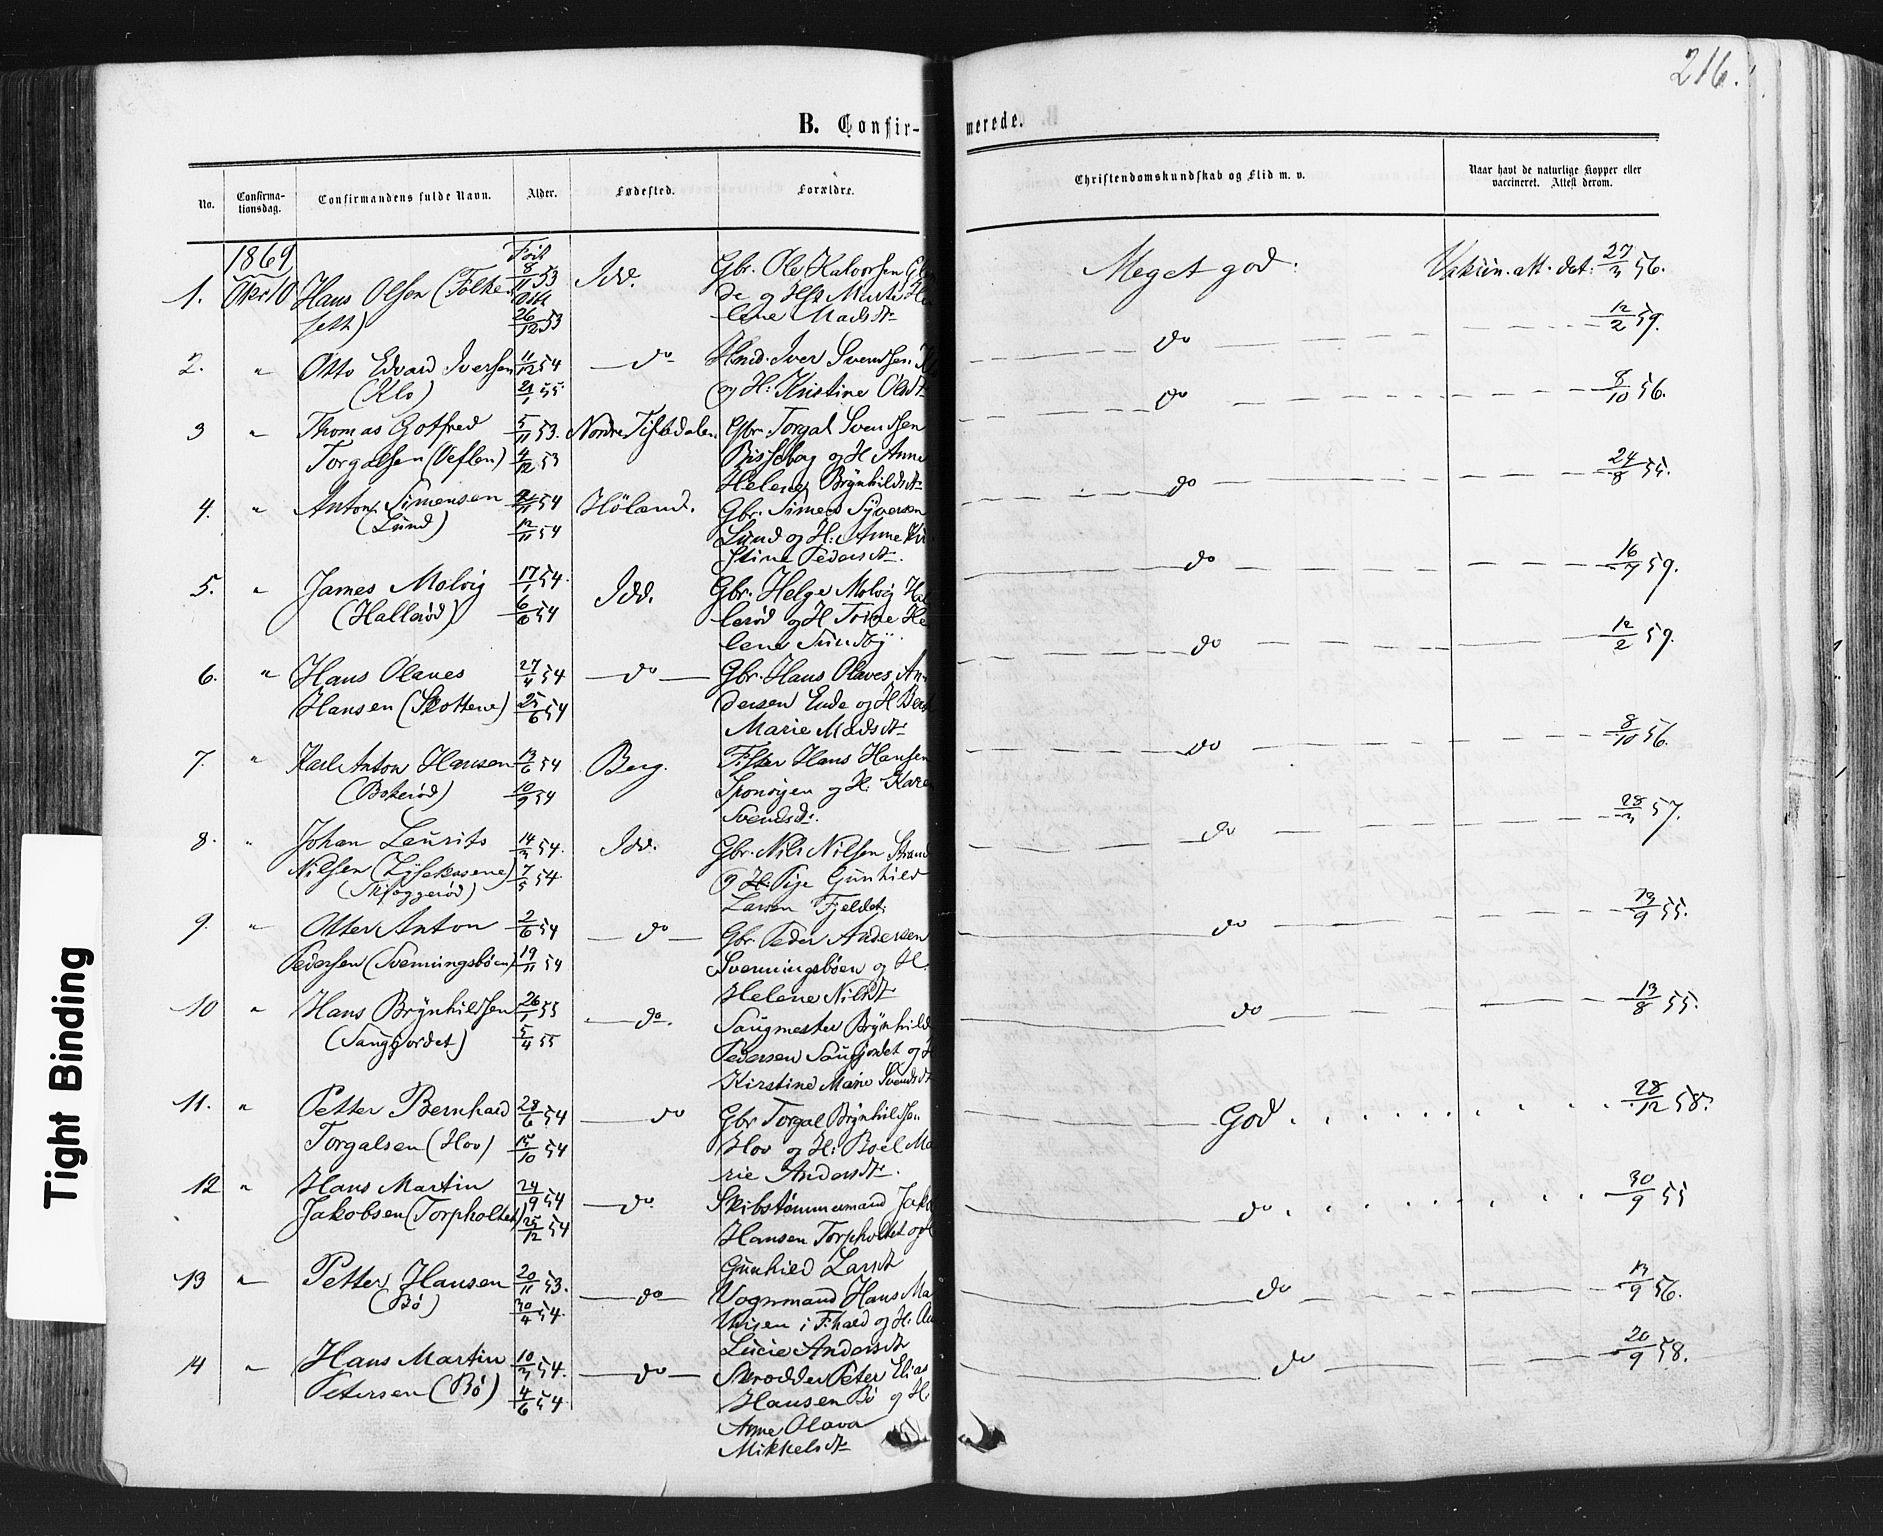 216.
B. Confir-
merede.
No.
Confirma-
tionsdag.
Confirmandens fulde Navn.
Alder.
Fødested.
Forældre.
Christendomskundskab og Flid m. v.
Naar havt de naturlige Kopper eller
vaccineret. Attest derom.
1869
1. Oktr 10 Hans Olsen (Folke- 8/11 53 Idd. Gbr. Ole Halvorsen
seth) 26/12 53 de og Hst Marte
lene Madsdtr
Meget god. Vakcin. att. dat. 27/3 56.
2. " Otto Edvard Iversen 11/12 54 — do Iver Svendsen
(Klo) 21/1 55 og H: Kristine Olsdtr
do 12/2 59.
3 " Thomas Gotfred 5/11 53. Nordre Tistedalen. Gbr. Torgal Svendsen
Torgalsen (Veflen) 4/12 53 og H Anne
Helene Brynhildsdtr
do 8/10 56.
4. " Anton Simensen 54 Høland. Gbr. Simen Syversen
(Lund) 12/11 54 Lund og H: Anne Kir-
stine Pedersdtr.
do 24/8 55.
5. " James Molvig 17/1 54. Idd. Gbr. Helge Molvig Hal
(Hallerød) 6/6 54 lerød og H Trine He
lene Sundby.
do 16/9 59.
6. " Hans Olaves 27/4 54 — do — Gbr. Hans Olaves An-
Hansen (Skottene) 25/6 54 dersen Ende og H. Bert
Marie Madsdtr
do 12/2 59.
7. " Karl Anton Hansen 13/6 54 Berg. Hans Hansen
(Bokerød) 10/9 54 Sponvigen og H. Karen
Svendsdtr.
do 8/10 56.
8. " Johan Lauritz 14/3 54. Idd. Gbr. Nils Nilsen Strand
Nilsen (Lysekasene) 7/5 54. og H. Pige Gunhild
(Skjeggerød) Larsen Fjeldet.
do 28/3 57.
9. " Otter Anton 2/6 54 — do — Gbr. Peder Andersen
Pedersen (Svenningsbøen) 19/11 54 Svenningsbøen og H.
Helene Nilsdtr
do 19/9 55.
10 " Hans Brynhildsen 26/1 55 — do. Saugmester Brynhild
(Saugjordet) 5/4 55 Pedersen Saugjordet og H
Kirstine Marie Svendsdtr
do 13/8 55.
11. " Petter Bernhard 28/6 54 — do Gbr Torgal Brynhildsen
Torgalsen (Hov) 15/10 54 Hov og H: Boel Ma
rie Andersdtr.
God 28/12 58.
12 " Hans Martin 24/9 54 — do. Skibstømmermand Jako
Jakobsen (Torpholtet) 25/12 54 Hansen Torpholtet og H
Gunhild Larsdtr
do 30/9 55
13 " Petter Hansen 20/11 53. — do — Vognmand Hans Ma
(Bø) 30/4 54. thisen i F.hald og H. An
Lucie Andersdtr
do 13/9 56.
14 " Hans Martin 10/3 54. — do — Skrædder Peter Elias
Petersen (Bø) 4/6 54. Hansen Bø og H.
Anne Olava
Mikkelsdtr
do 20/9 58.
Tight Binding